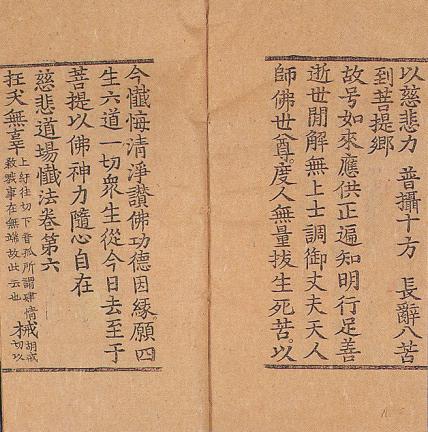 以慈悲力　普攝十方　長辭八苦
到菩提鄉
故号如來應供正遍知明行足善
逝世閒解無上士調御丈夫天人
師佛世尊。度人無量拔生死苦。以
今懺悔清淨讚佛功德因緣。願四
生六道一切衆生從今日去至于
菩提以佛神力隨心自在
慈悲道場懺法卷第六
枉夭無辜上紆往切下音孤所謂肆情殺戮事在無端故此云也械胡戒切以